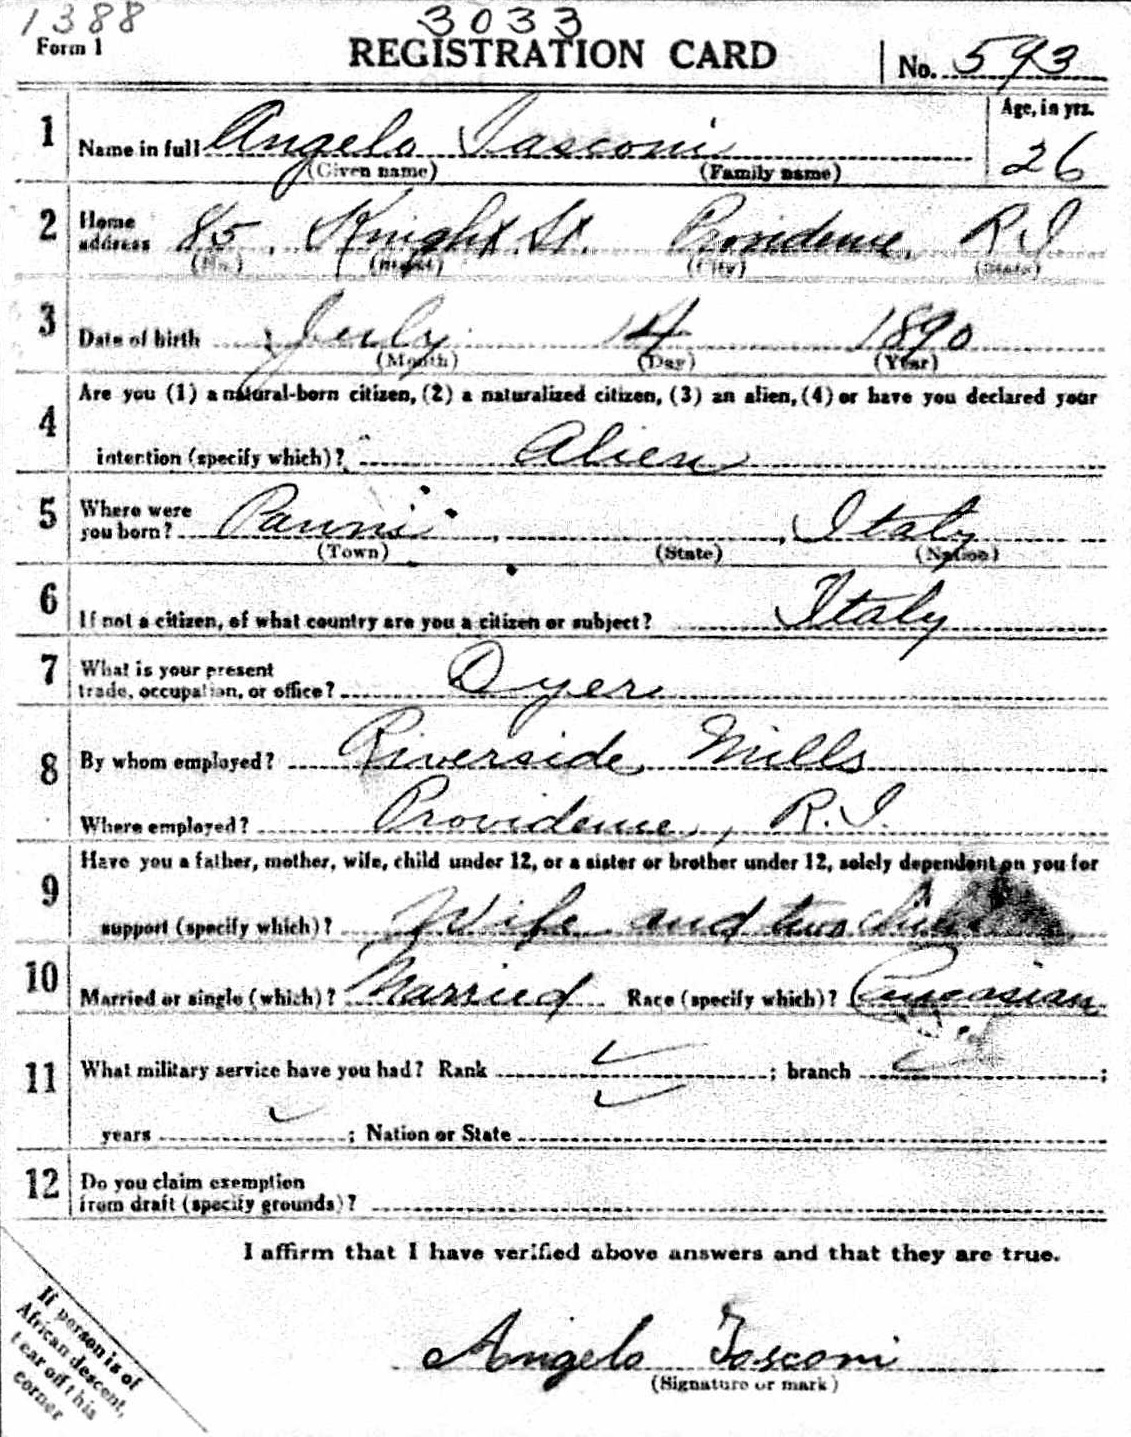 1388
3033
Form 1 REGISTRATION CARD No. 593
1 Name in full Angelo Tasconi Age, in yrs. 26
(Given name) (Family name)
2 Home address 85 Knight St. Providence, R.I.
(No.) (Street) (City) (State)
3 Date of birth July 14 1890
(Month) (Day) (Year)
4 Are you (1) a natural-born citizen, (2) a naturalized citizen, (3) an alien, (4) or have you declared your
intention (specify which)? Alien
5 Where were you born? Panni, Italy
(Town) (State) (Nation)
6 If not a citizen, of what country are you a citizen or subject? Italy
7 What is your present
trade, occupation, or office? Dyer
8 By whom employed? Riverside Mills
Where employed? Providence, R.I.
9 Have you a father, mother, wife, child under 12, or a sister or brother under 12, solely dependent on you for
support (specify which)? Wife and two
10 Married or single (which)? Married Race (specify which)? Caucasian
11 What military service have you had? Rank ; branch ;
years ; Nation or State
12 Do you claim exemption
from draft (specify grounds)?
I affirm that I have verified above answers and that they are true.
Angelo Tosconi
(Signature or mark)
If person is of
African descent,
tear off this
corner